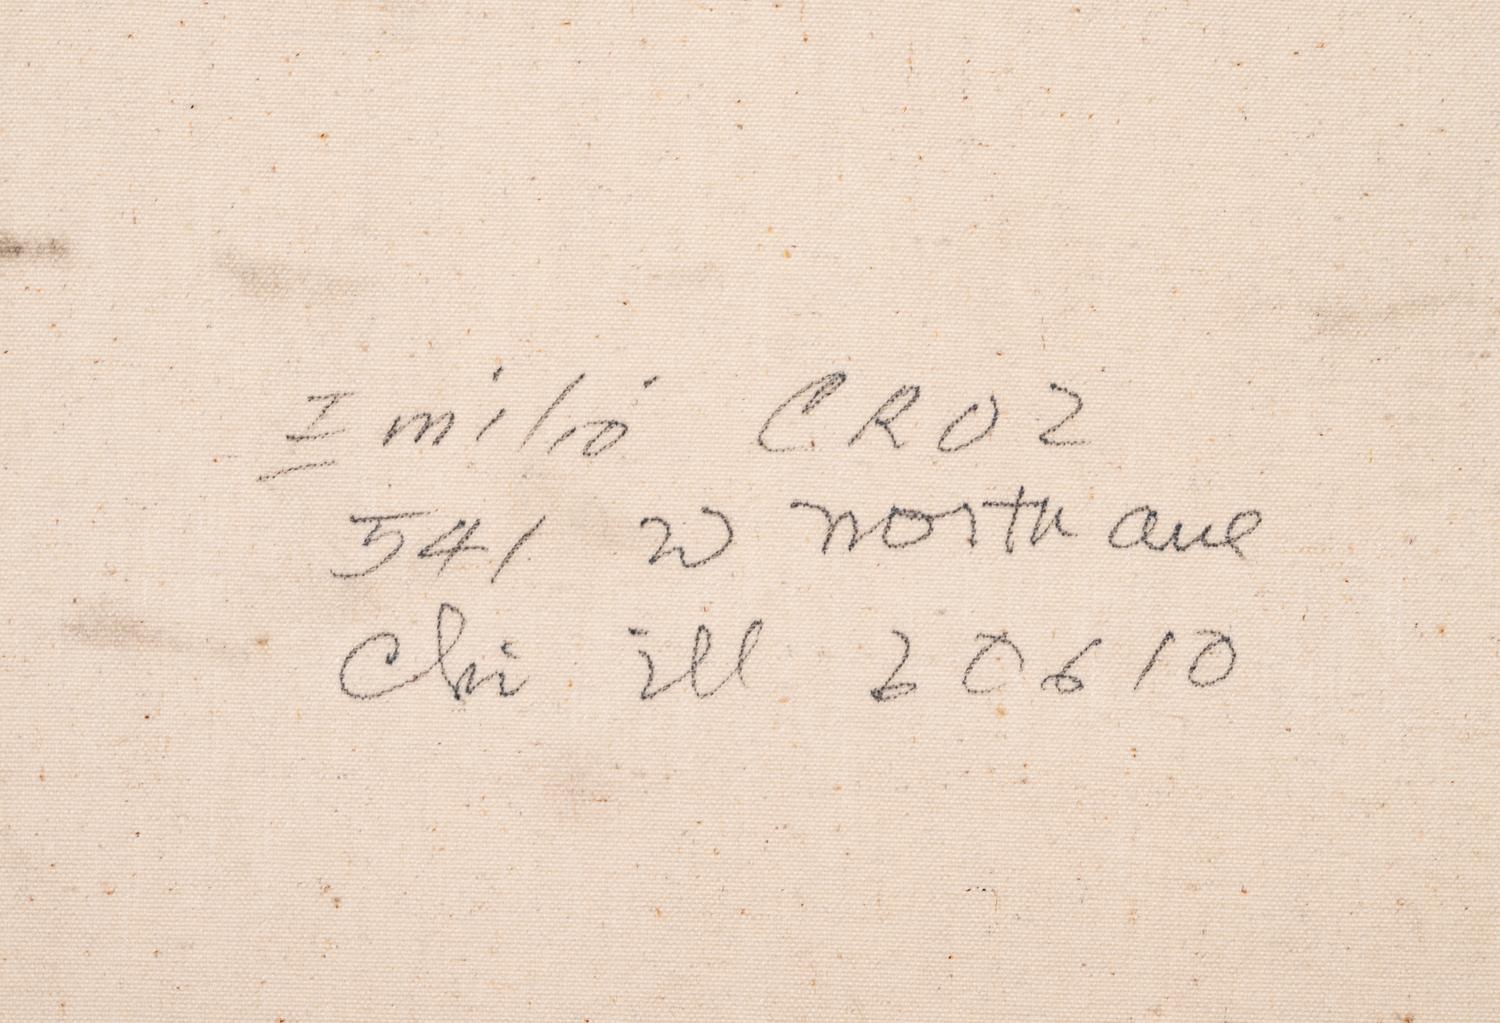 Emilio CRUZ
541 W North ave
Chi ill 20610